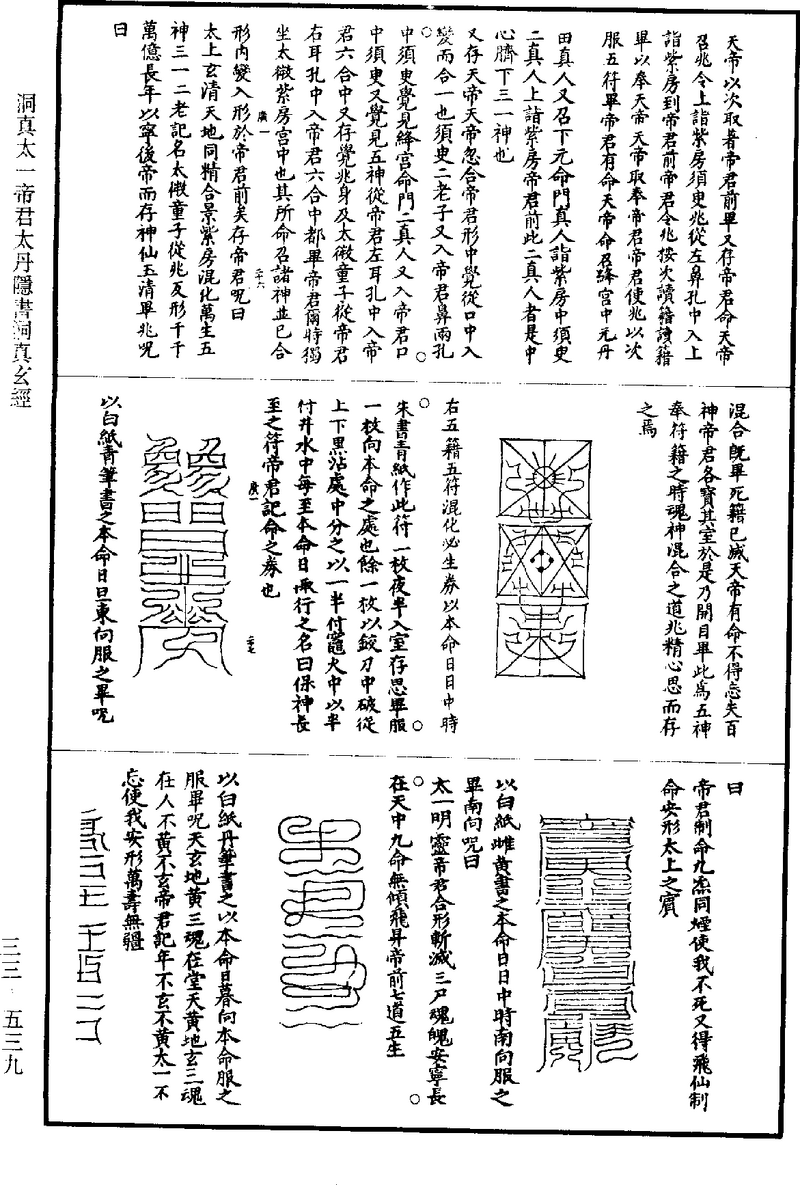 天帝以次取著帝君前畢又存帝君命天帝
召兆令上詣紫房須臾兆從左鼻孔中入上
詣紫房到帝君前帝君令兆按次讀籍讀籍
畢以奉天帝天帝取奉帝君帝君使兆以次
服五符畢帝君有命天帝命召絳宮中元丹
田真人又召下元命門真人詣紫房中須臾
二真人上詣紫房帝君前此二真人者是中
心臍下三一神也
又存天帝天帝忽合帝君形中覺從口中入
變而合一也須臾二老子又入帝君鼻兩孔
中須臾覺見絳宮命門二真人又入帝君口
中須臾又覺見五神從帝君左耳孔中入帝
君六合中又存覺兆身及太微童子從帝君
右耳孔中入帝君六合中都畢帝君爾時獨
坐太微紫房宮中也其所命召諸神並已合
形內變入形於帝君前矣存帝君呪曰
太上玄清天地同精合景紫房混化萬生五
神三一二老記名太微童子從兆反形千千
萬億長年以寧後帝而存神仙玉清畢兆呪
曰
混合既畢死籍已滅天帝有命不得忘失百
神帝君各寶其室於是乃開目畢此為五神
奉符籍之時魂神混合之道兆精心思而存
之焉
右五籍五符混化必生券以本命日日中時
朱書青紙作此符一枚夜半入室存思畢服
一枚向本命之處也餘一枚以鉸刀中破從
上下黑沾處中分之以一半付竈火中以半
付井水中每至本命日兩行之名曰保神長
至之符帝君記命之券也
以白紙青筆書之本命日旦東向服之畢呪
曰
帝君制命九炁同煙使我不死又得飛仙制
命安形太上之賓
以白紙雌黃書之本命日日中時南向服之
畢南向呪曰
太一明靈帝君合形斬滅三尸魂魄安寧長
在天中九命無傾飛昇帝前七道五生
以白紙丹筆書之以本命日暮向本命服之
服畢呪天玄地黃三魂在堂天黃地玄三魂
在人不黃不玄帝君記年不玄不黃太一不
忘使我安形萬壽無疆
洞真太一帝君太丹隱書洞真玄經
三三 五三九